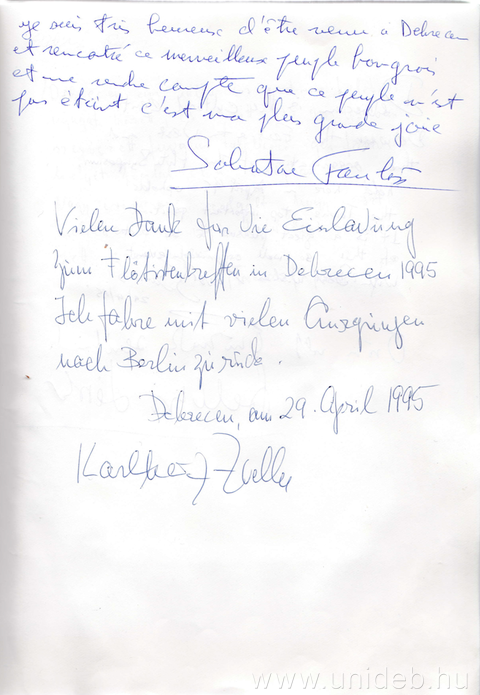 je suis très heureux d'être venu à Debrecen
et rencontré ce merveilleux peuple hongrois
et me rendre compte que ce peuple n'est
pas éteint c'est ma plus grande joie
Vielen Dank für die Einladung
zum Flötistentreffen in Debrecen 1995
Ich fahre mit vielen Anregungen
nach Berlin zurück.
Debrecen, am 29. April 1995
Karlheinz Zoeller
www.unideb.hu